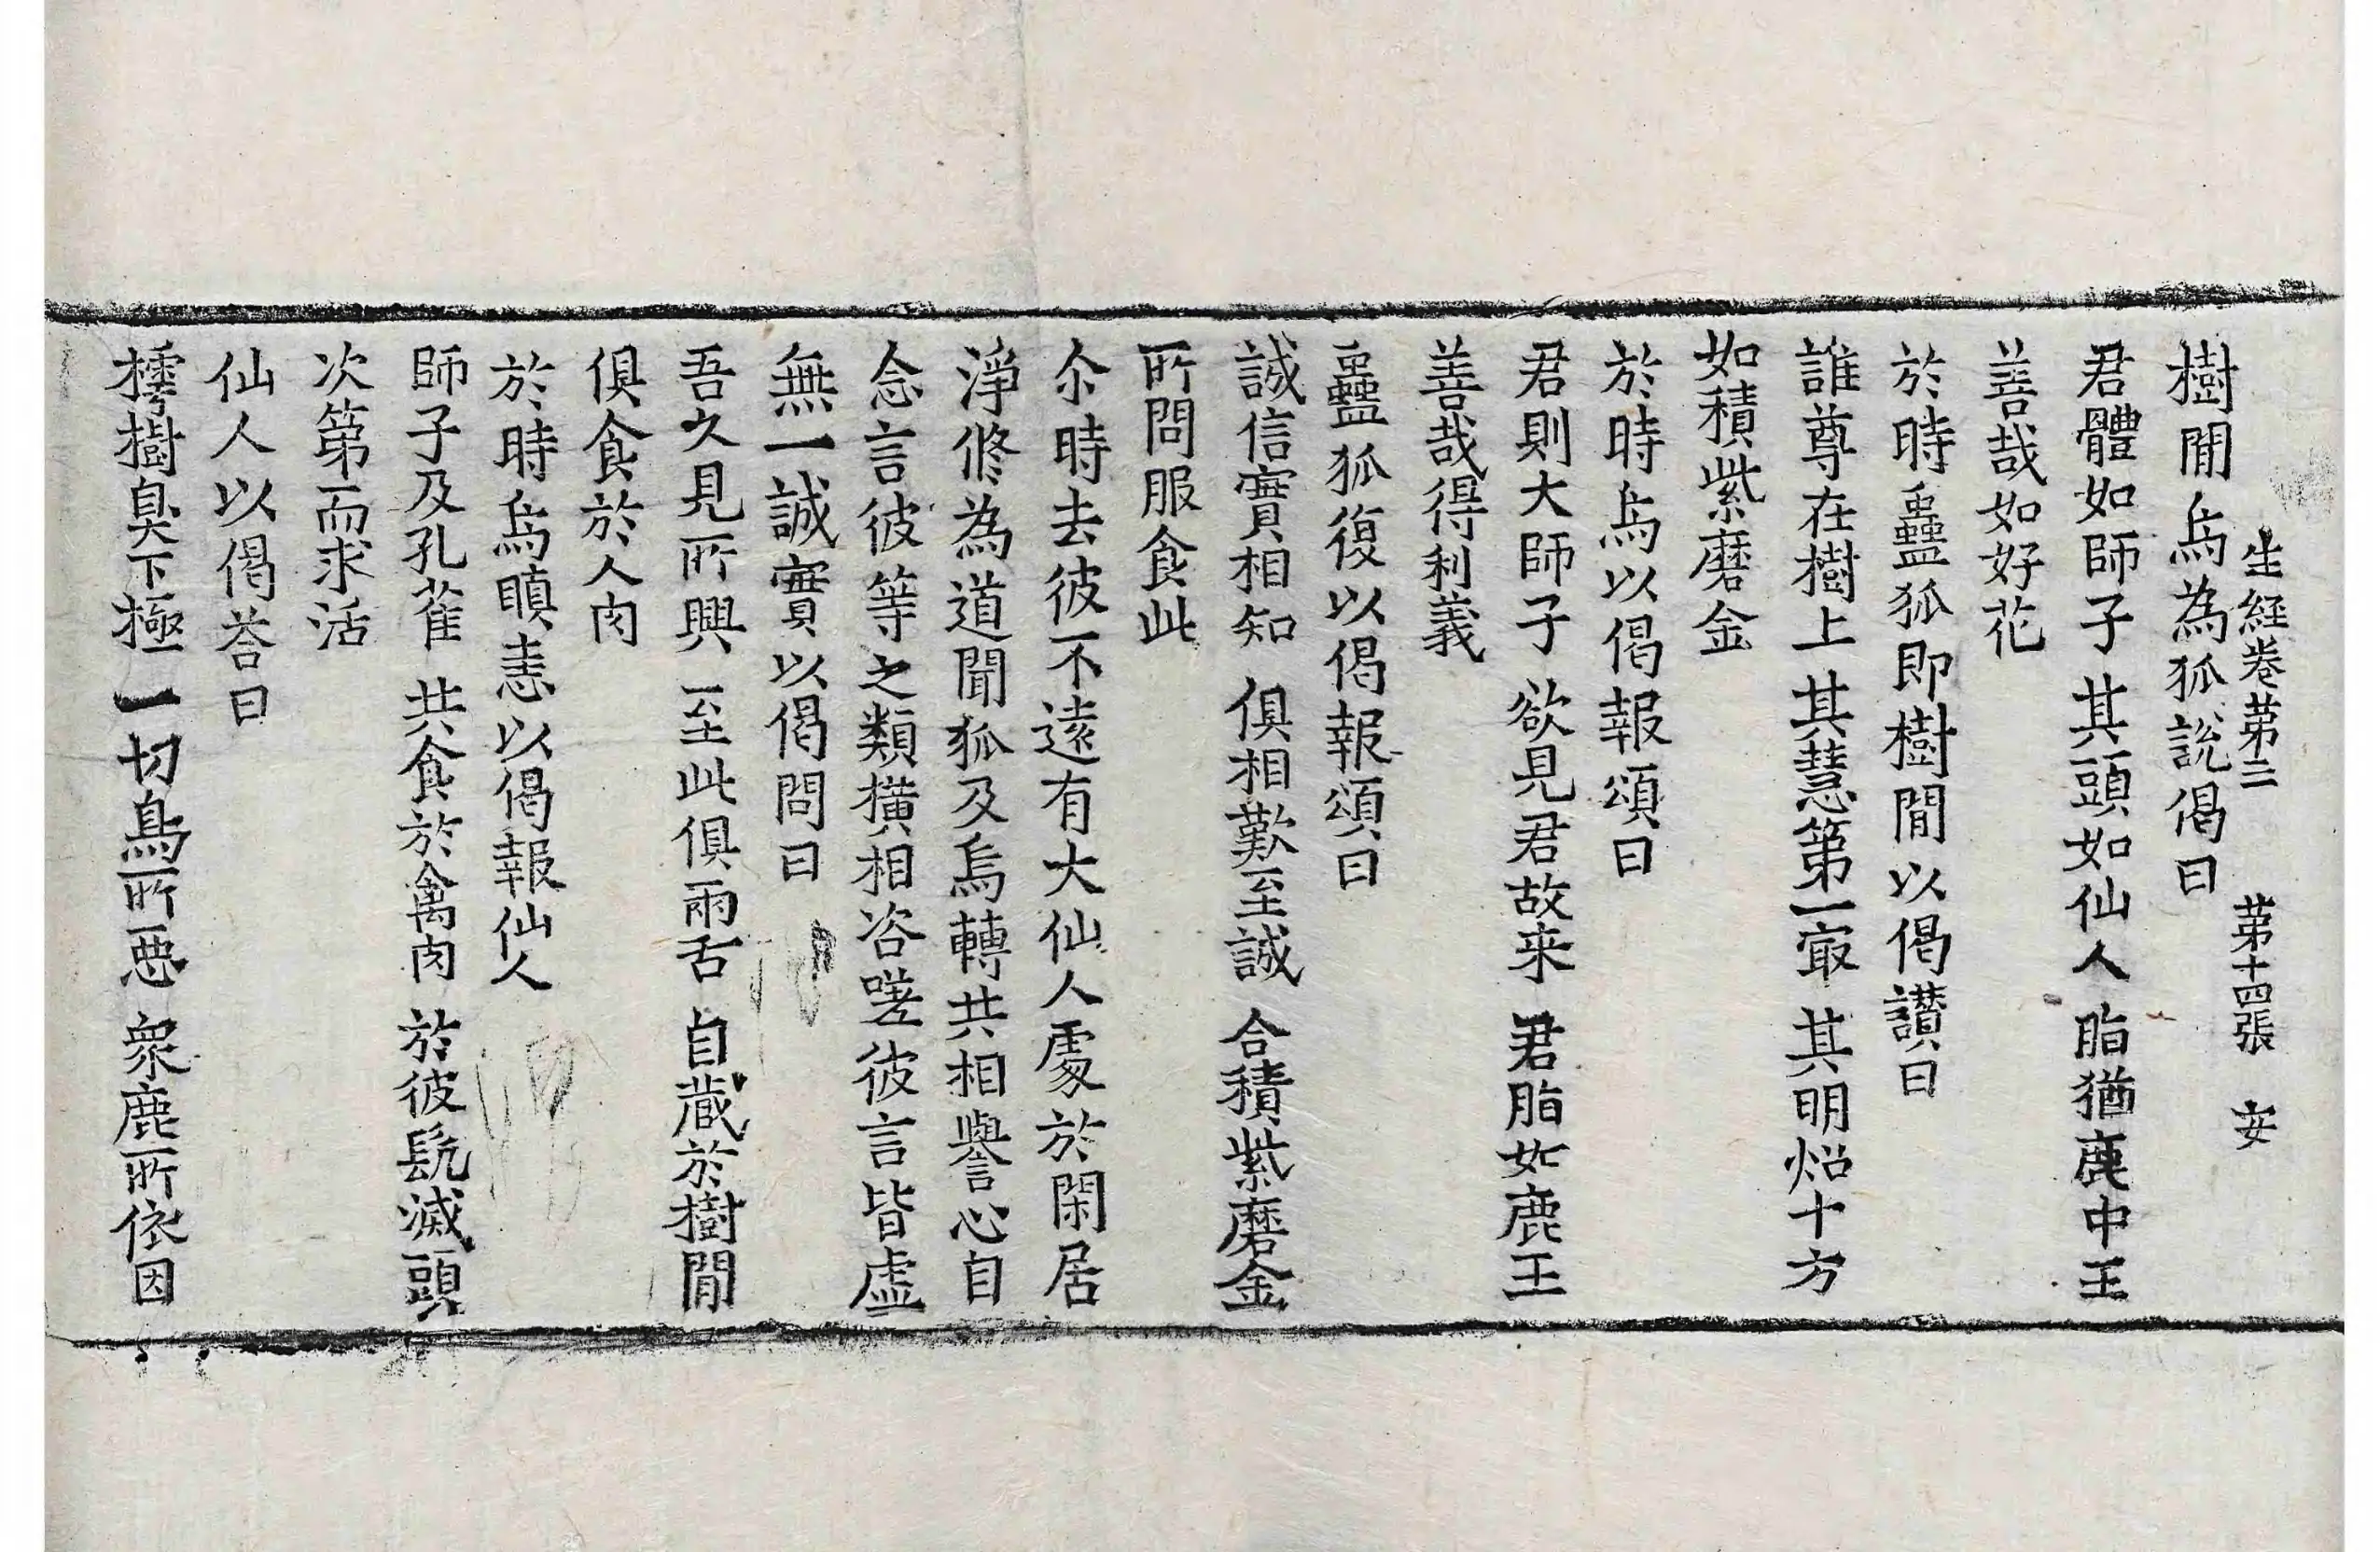 生経卷第三　第十四張　安
樹間烏為狐說偈曰
君體如師子　其頭如仙人　脂猶鹿中王
善哉如好花
於時蠱狐即樹間以偈讃曰
誰尊在樹上　其慧第一㝡　其明炤十方
如積紫磨金
於時烏以偈報頌曰
君則大師子　欲見君故来　君脂如鹿王
善哉得利義
蠱狐復以偈報頌曰
誠信實相知　俱相歎至誠　合積紫磨金
所問服食此
尒時去彼不遠有大仙人處於閑居
淨修為道聞狐及烏轉共相譽心自
念言彼等之類橫相咨嗟彼言皆虛
無一誠實以偈問曰
吾久見所興　至此俱兩舌　自藏於樹間
俱食於人肉
於時烏瞋恚以偈報仙人
師子及孔雀　共食於禽肉　於彼髡滅頭
次第而求活
仙人以偈荅曰
樗樹臭下極　一切鳥所惡　衆鹿所依因